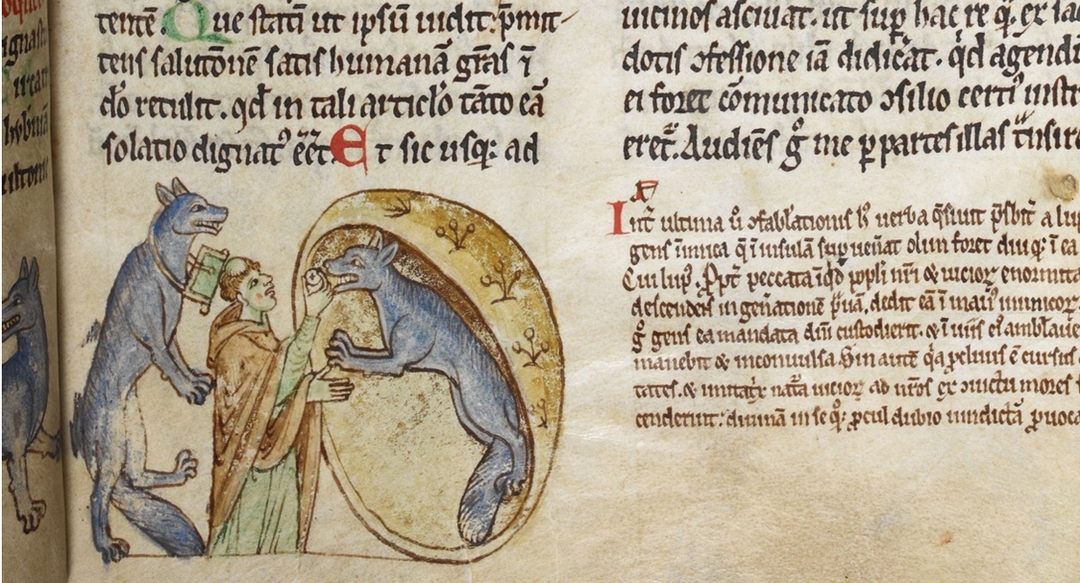 tentē. Que statī ut ipsū uidit. p̄mit-
tens salutōnē satis humanā gr̄as ī
dō retulit. qd̓ in tali articlo tāto eā
solatio dignat᷒ eēt. Et sic usq; ad
uicinos asciuat. ut sup hac re
dotis ɔfessione iā didicat. qd̓ agend
ei foret cōmunicato ɔsilio certi᷒ instr
eret᷑. Audiēs g̊ me p partes illas t̄nsir
Int̓ ultima u̓ ɔfablationis h᷒ uerba q̄siuit p̄sbit̓ a lup
gens inimica q̄ ī insulā sup uenat olim foret diu q; ī ea
Cui lup᷒. Ppt̓ peccata īq̊d popli n̄ri & uicioꝝ enormita
descendēs in geñationē p̄uā. dedit eā ī man᷒ inimicoꝝ
g̊ gens ea mandata dn̄i custodierit. & ī uiis ei᷒ ambl̄aue
manebit & inconuulsa Sin autē q̄a ꝓcliuis ē cursus
tates. & nat̓a uicioꝝ ad ur̄os ex ɔuictu mores
cenderint: diuinā in se q̊q; ꝓcul dubio uindictā ꝓuoca